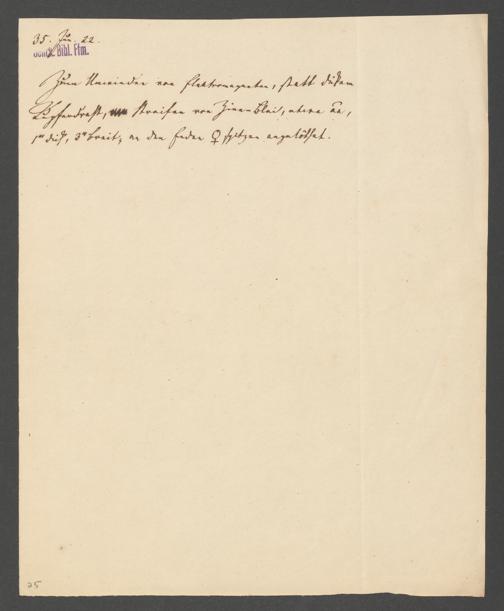 35. Ju. 22.
Senck. Bibl. Ffm.
Zum Umwinden von Elektromagneten, statt dickem
Kupferdraht, Streifen von Zinn Blei, etwa
1''' dick, 3''' breit, an den Enden ♀ spitzen angelöthet.
25